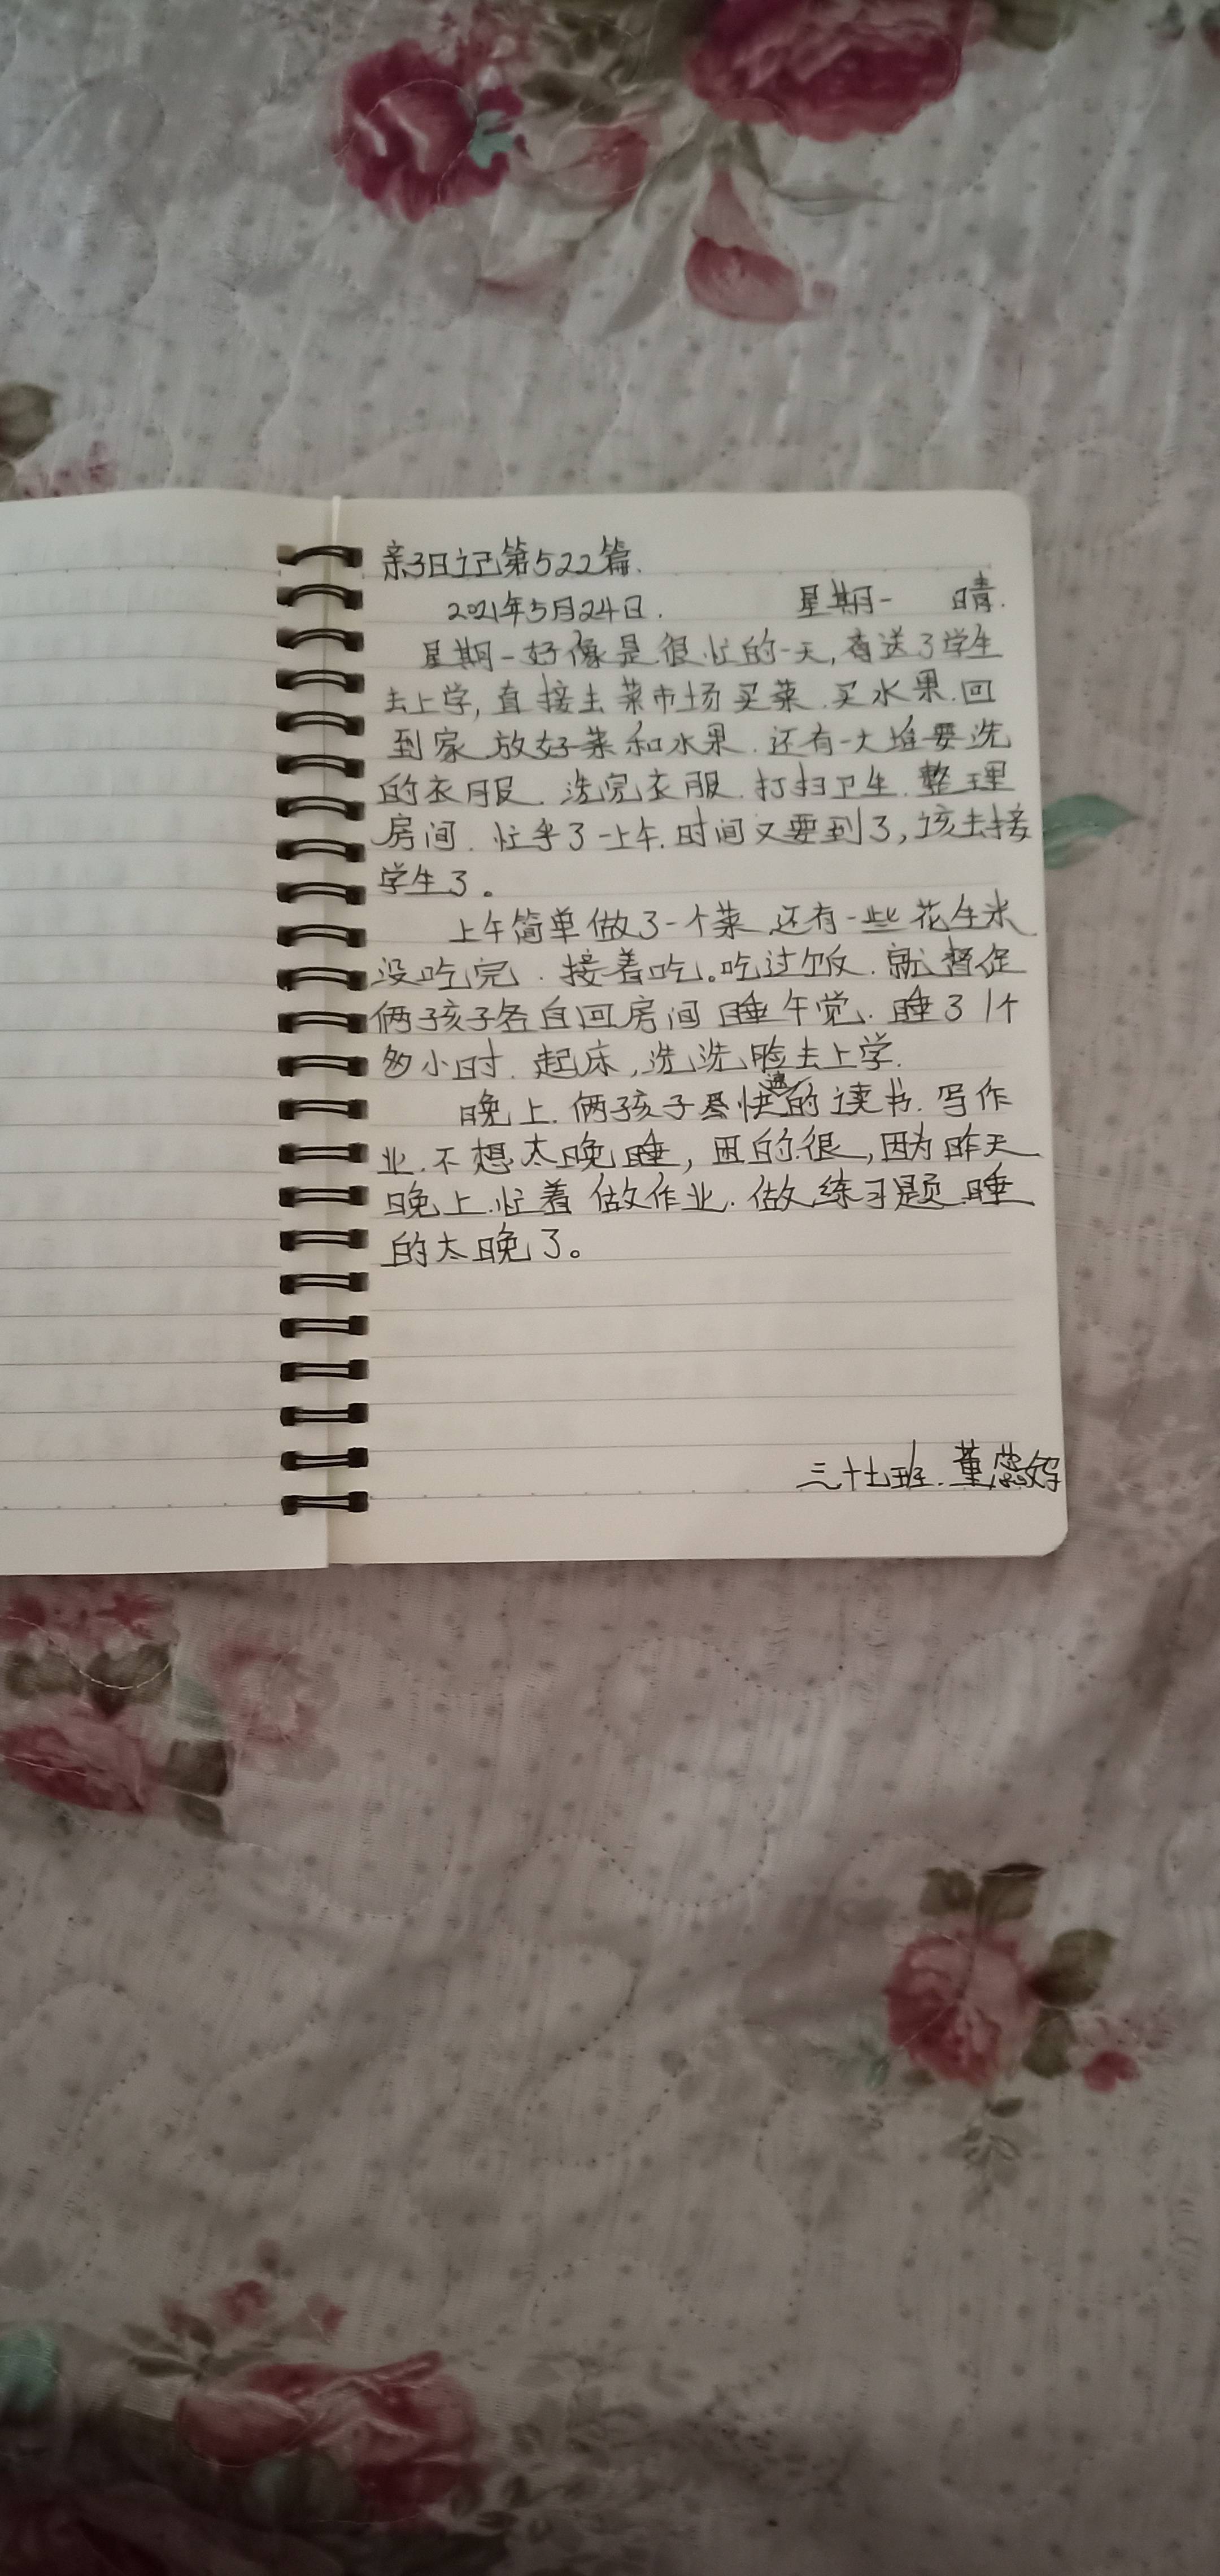 亲子日记第522篇.
2021年5月24日. 星期一 晴.
星期一好像是很忙的一天,有送了学生
去上学,直接去菜市场买菜.买水果.回
到家放好菜和水果.还有一大堆要洗
的衣服.洗完衣服.打扫卫生.整理
房间.忙乎了一上午.时间又要到了,该去接
学生了。
上午简单做了一个菜.还有一些花生米
没吃完.接着吃。吃过饭.就督促
俩孩子各自回房间睡午觉.睡了1个
多小时.起床,洗洗脸去上学.
晚上.俩孩子尽快速的读书.写作
业.不想太晚睡,困的很,因为昨天
晚上.忙着做作业.做练习题.睡
的太晚了。
三十七班.董蕊妈